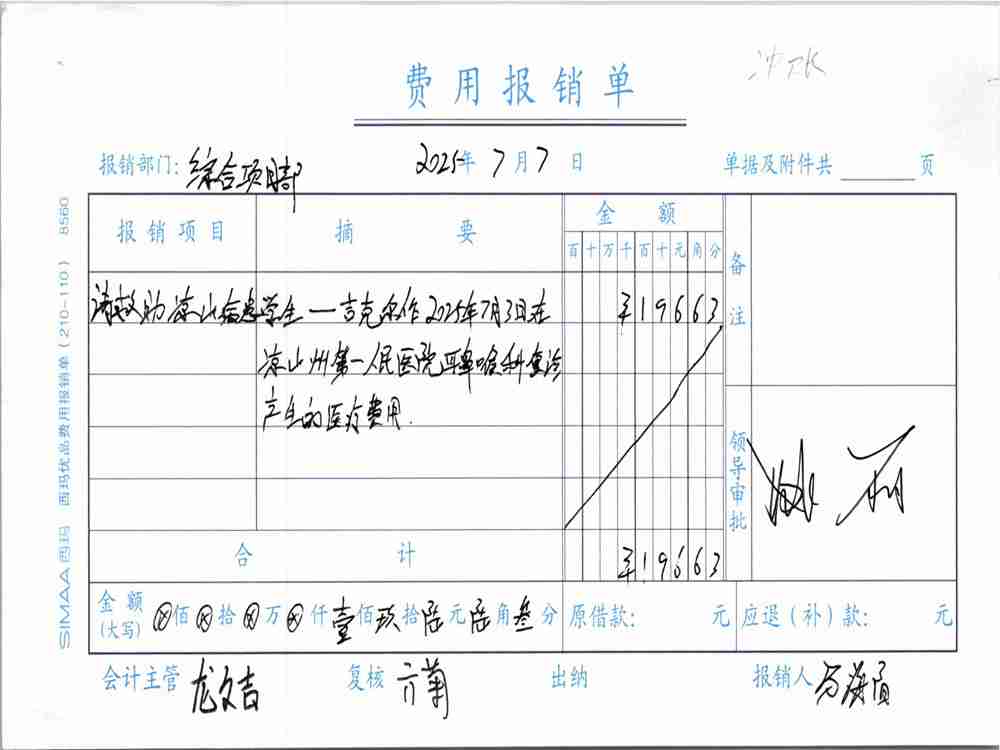 费用报销单
报销部门：综合项目部 2025年7月7日 单据及附件共 页
报销项目 摘要 金额 备注
百十万千百十元角分
请救助凉山 学生一吉克 2025年7月3日在 ¥19663
凉山州第一人民医院耳鼻喉科 诊
产生的医疗费用.
领导审批
合计 ¥19663
金额(大写) ⊗佰⊗拾⊗万⊗仟壹佰玖拾陆元陆角叁分 原借款： 元 应退（补）款： 元
会计主管 龙文吉 复核 出纳 报销人
SIMAA西玛 西玛优品费用报销单（210-110） 8560